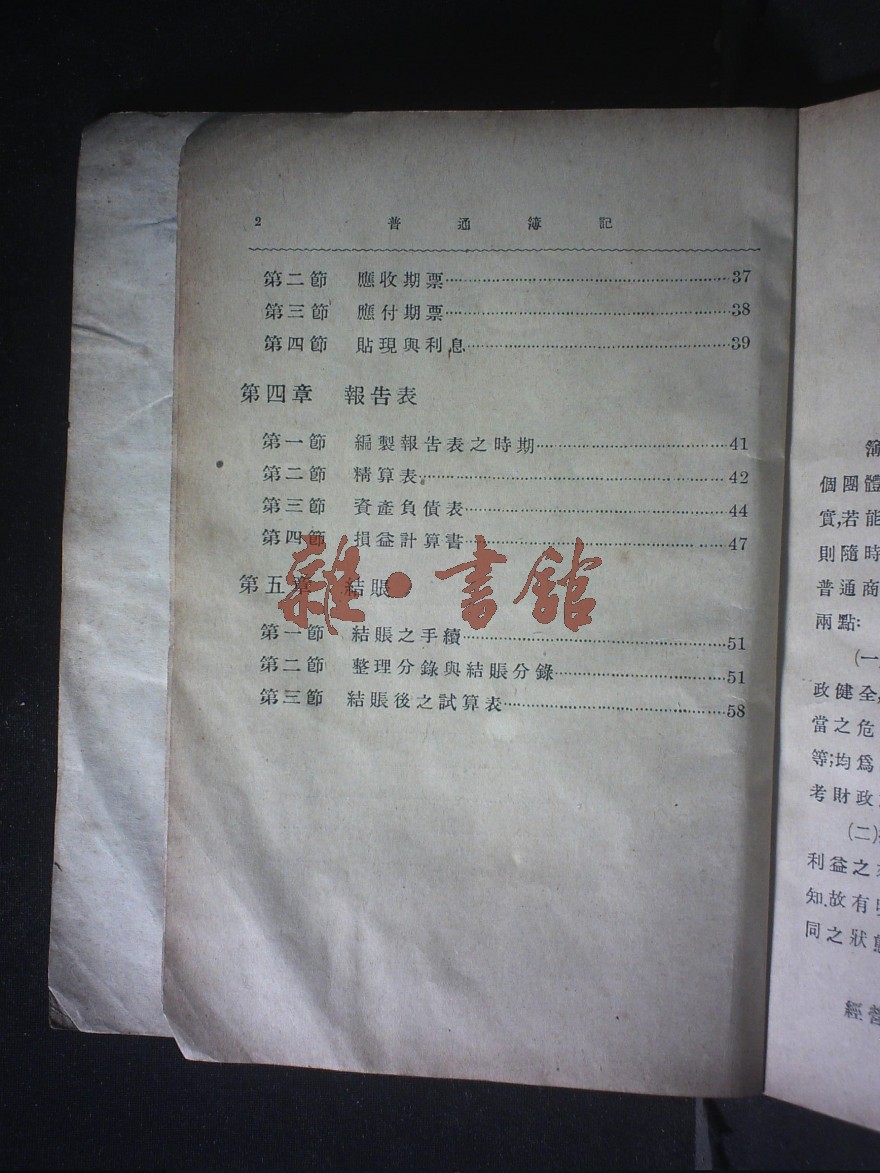 2 普通簿記
第二節 應收期票……37
第三節 應付期票……38
第四節 貼現與利息……39
第四章 報告表
第一節 編製報告表之時期……41
第二節 精算表……42
第三節 資產負債表……44
第四節 損益計算書……47
第五章 結賬
第一節 結賬之手續……51
第二節 整理分錄與結賬分錄……51
第三節 結賬後之試算表……58
雜·書館
簿
個團體
實,若能
則隨時
普通商
兩點:
(一
政健全,
當之危
等;均爲
考財政
(二)
利益之
知.故有
同之狀態
經營